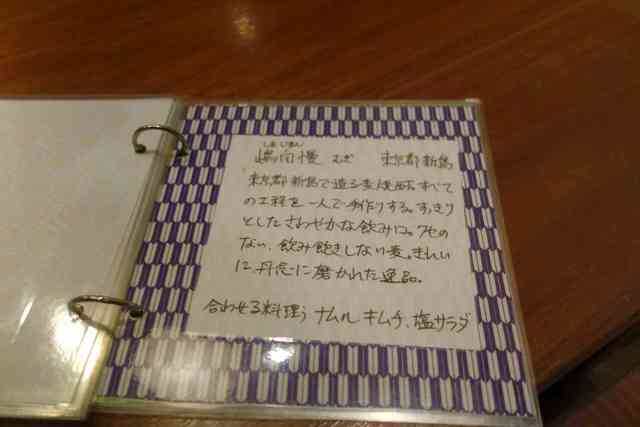 しまじまん
嶋自慢 むぎ 東京都 新島
東京都 新島で造る麦焼酎。すべて
の工程を一人で手作りする。すっきり
としたさわやかな飲み口。クセの
ない、飲み飽きしない麦。きれい
に、丹念に磨かれた逸品。
合わせる料理う ナムル キムチ、塩サラダ